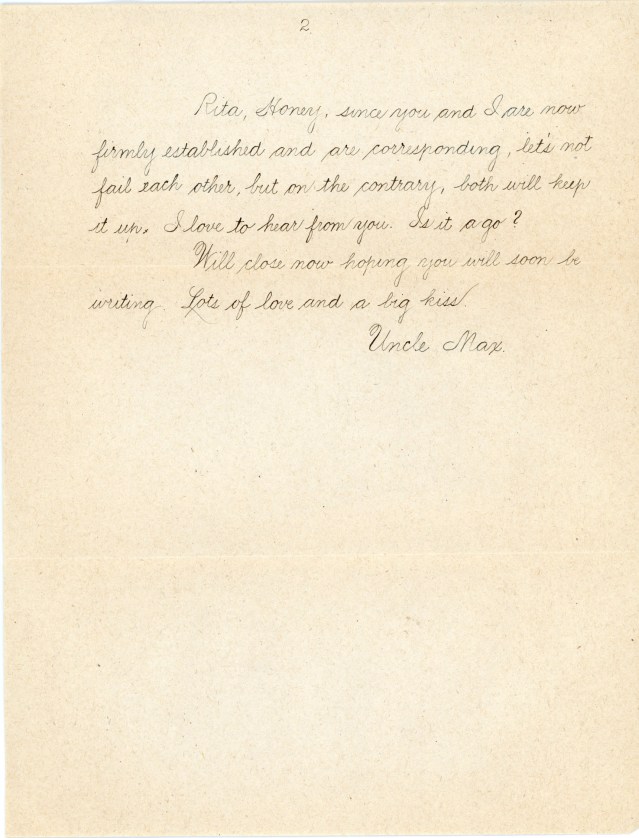 2
Rita, Honey, since you and I are now
firmly established and are corresponding, let's not
fail each other, but on the contrary, both will keep
it up. I love to hear from you. Is it a go?
Will close now hoping you will soon be
writing. Lots of love and a big kiss.
Uncle Max.